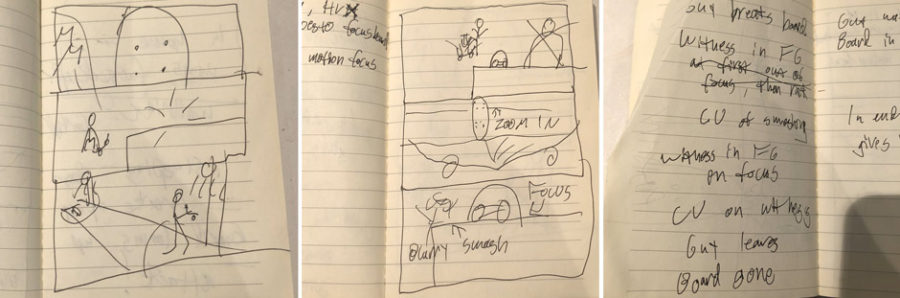 motion focus
ZOOM IN
FOCUS
Guy
Blurry
Smash
Guy breaks board
Witness in FG
at first out of
focus, then not
CU of smashing
Witness in FG
in focus
CU on witness
Guy leaves
Board gone
Guy
Board in
In end
gives